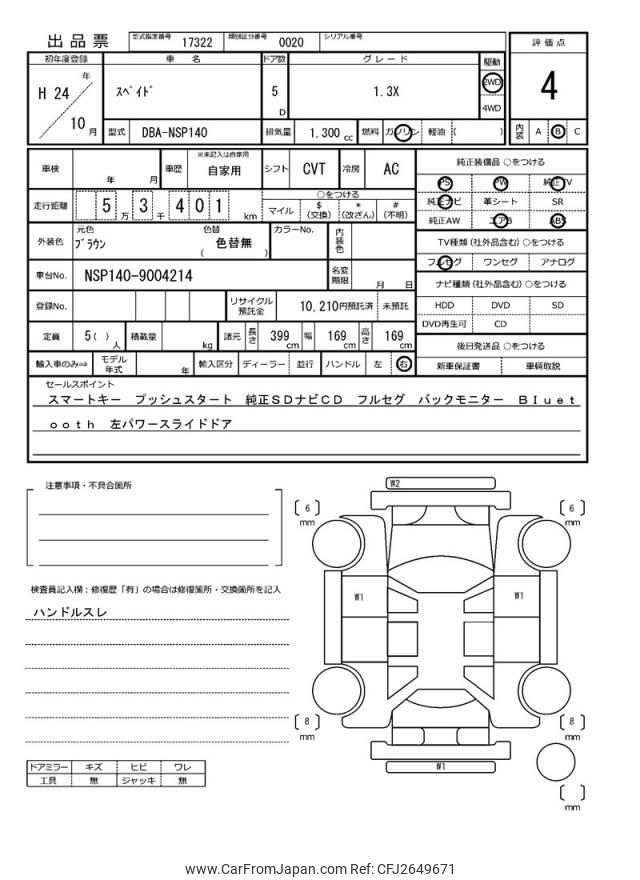 出品票 型式指定番号 17322 類別区分番号 0020 シリアル番号
評価点
4
内装 A B C
初年度登録 車名 ドア数 グレード 駆動
H 24 年 10 月
スペイド 5 D 1.3X 2WD 4WD
型式 DBA-NSP140 排気量 1.300 cc 燃料 ガソリン 軽油 ( )
車検 年 月 車歴 ※未記入は自家用 自家用 シフト CVT 冷房 AC
走行距離 5 万 3 千 4 0 1 km ○をつける
マイル $ (交換) * (改ざん) # (不明)
外装色 元色 ブラウン 色替 色替無 ( ) カラーNo. 内装色
車台No. NSP140-9004214 名変期限 月 日
登録No. リサイクル預託金 10,210円預託済 未預託
定員 5( ) 人 積載量 kg 諸元 長さ 399 cm 幅 169 cm 高さ 169 cm
輸入車のみ⇒ モデル年式 年 輸入区分 ディーラー 並行 ハンドル 左 右
純正装備品 ○をつける
PS PW 純正TV
純正ナビ 革シート SR
純正AW エアB ABS
TV種類(社外品含む)○をつける
フルセグ ワンセグ アナログ
ナビ種類(社外品含む)○をつける
HDD DVD SD
DVD再生可 CD
後日発送品 ○をつける
新車保証書 車輌取説
セールスポイント
スマートキー プッシュスタート 純正SDナビCD フルセグ バックモニター Bluet
ooth 左パワースライドドア
注意事項・不具合箇所
検査員記入欄：修復歴「有」の場合は修復箇所・交換箇所を記入
ハンドルスレ
ドアミラー キズ ヒビ ワレ
工具 無 ジャッキ 無
W2
6 mm
6 mm
W1
W1
8 mm
8 mm
W1
mm
www.CarFromJapan.com Ref: CFJ2649671